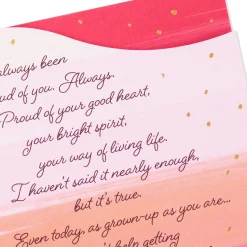 always been
ud of you. Always.
Proud of your good heart,
your bright spirit,
your way of living life.
I haven't said it nearly enough,
but it's true.
Even today, as grown-up as you are...
help getting